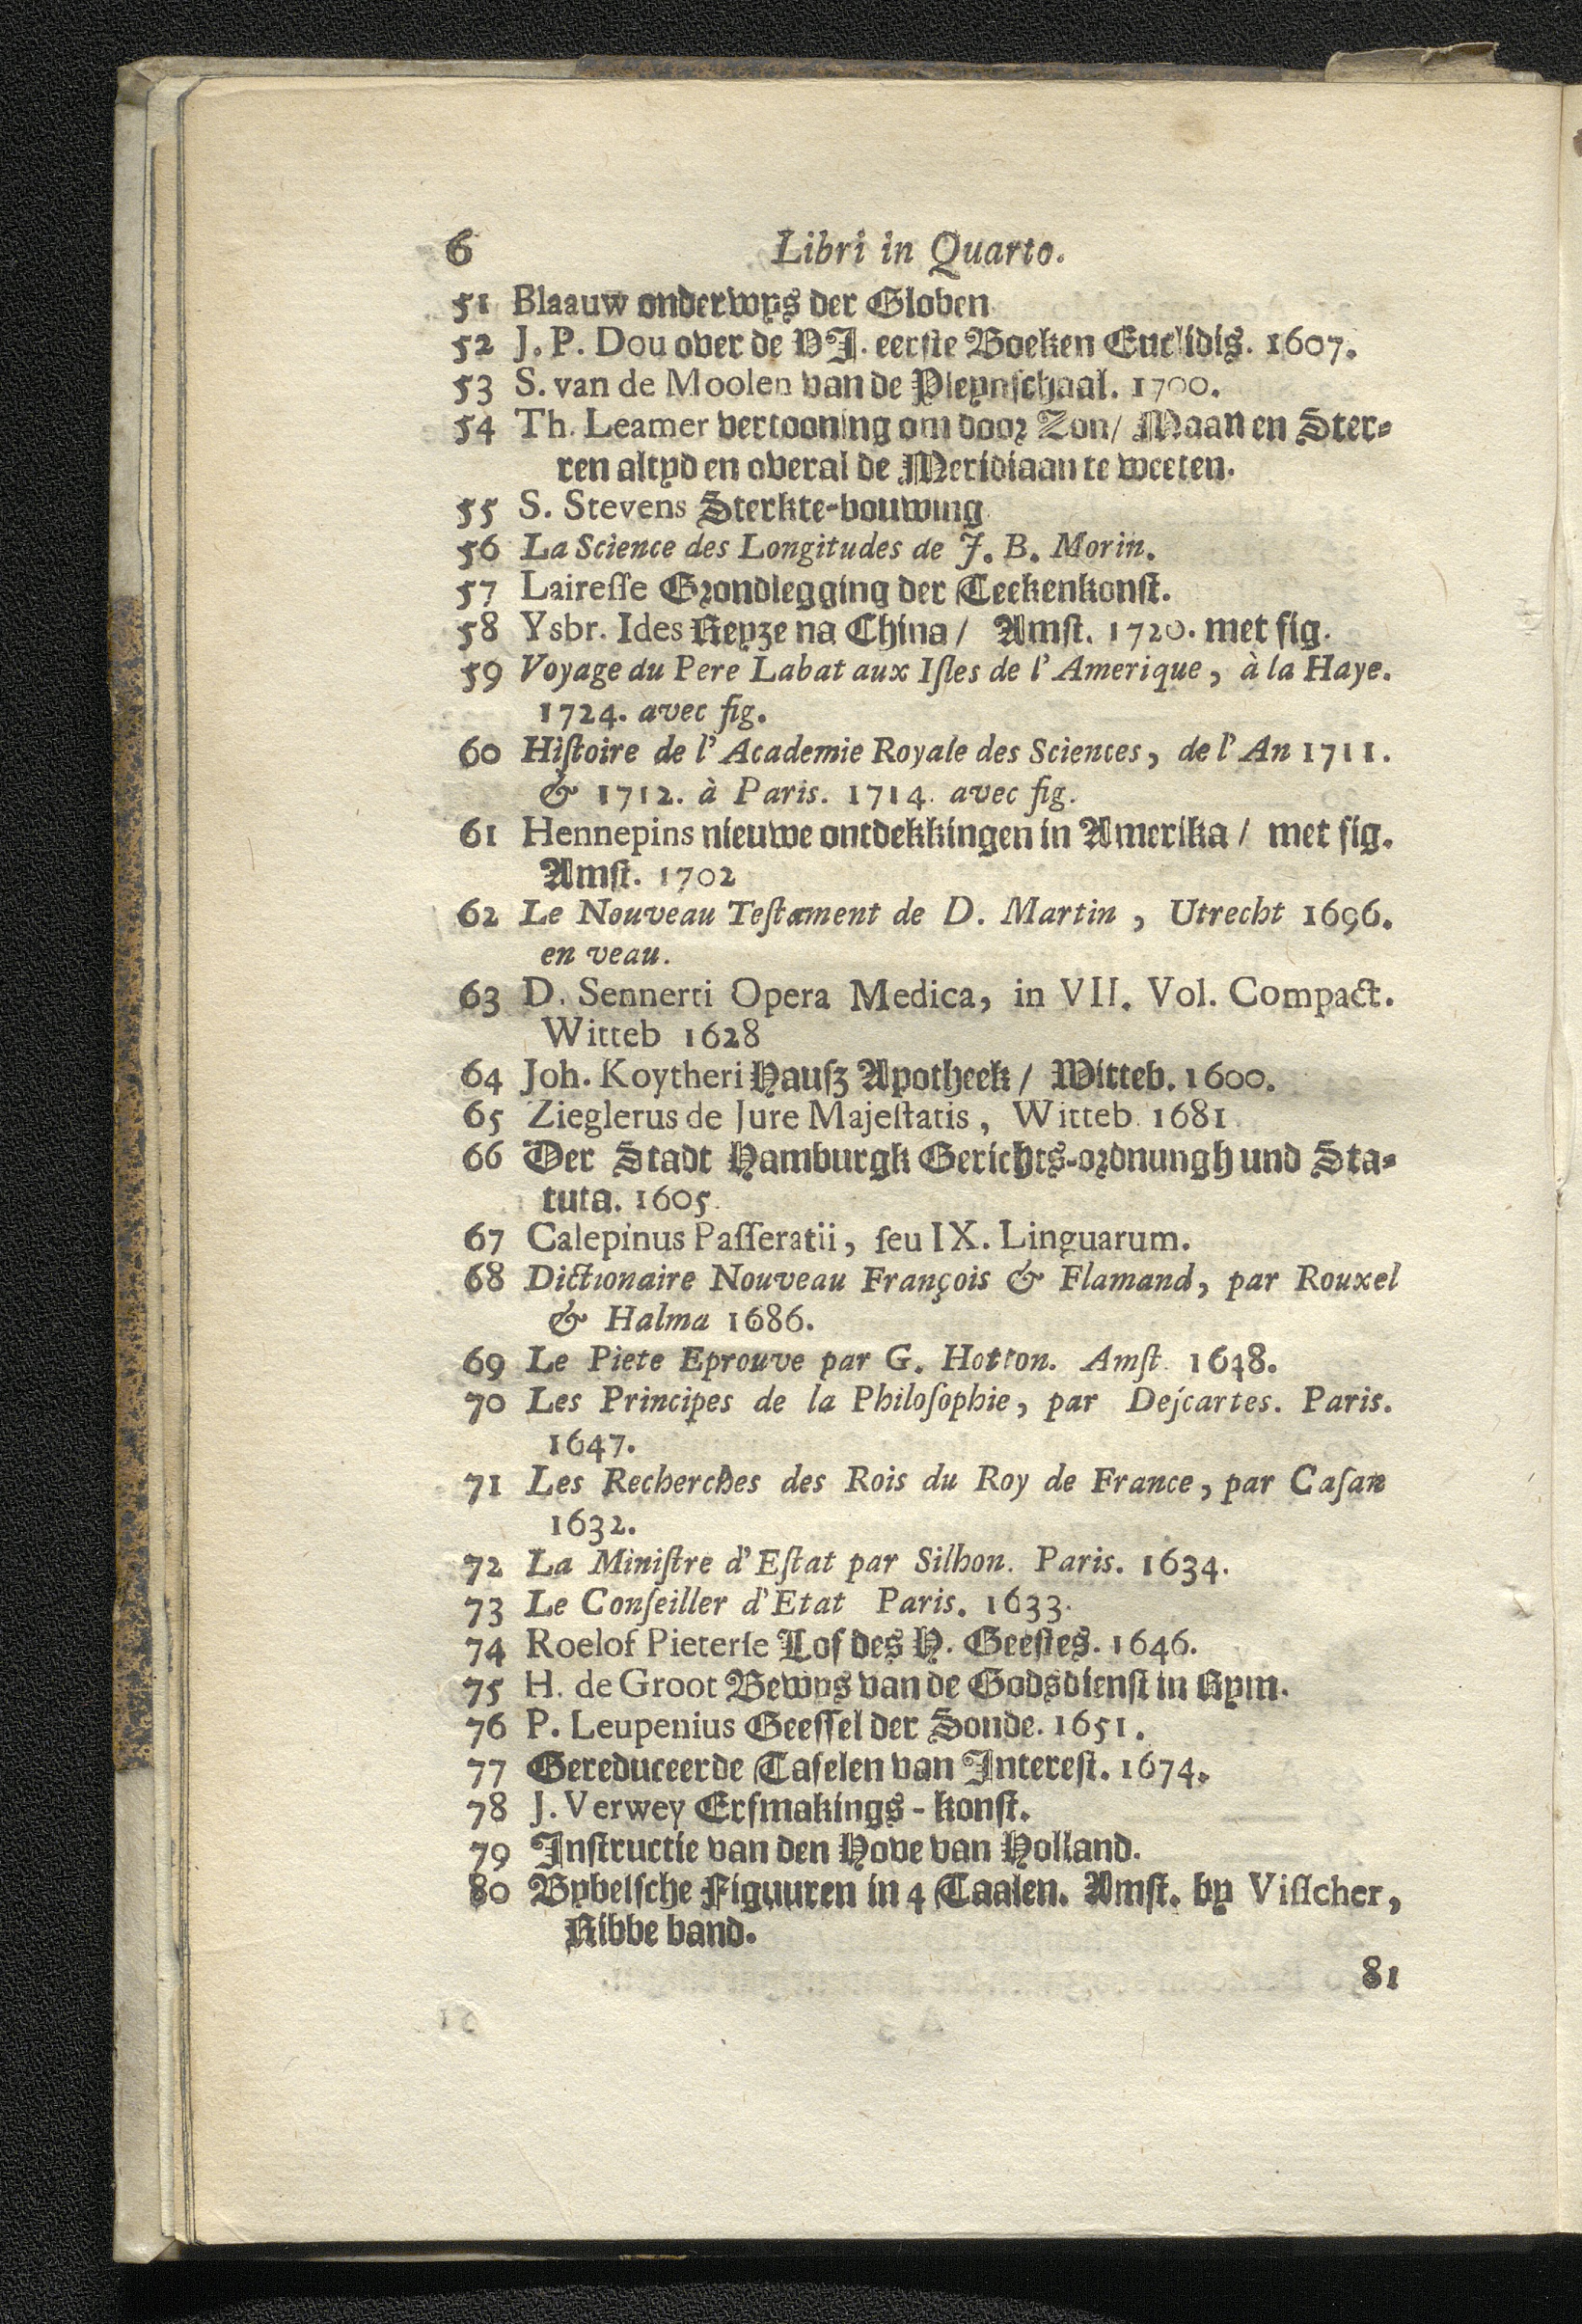 6 Libri in Quarto.
51 Blaauw onderwys der Globen
52 J. P. Dou over de VI. eerste Boeken Euclidis. 1607.
53 S. van de Moolen van de Pleynschaal. 1700.
54 Th. Leamer vertooning om door Zon/ Maan en Ster-
ren altyd en overal de Meridiaan te weeten.
55 S. Stevens Sterkte-bouwing
56 La Science des Longitudes de J. B. Morin.
57 Lairesse Grondlegging der Teekenkonst.
58 Ysbr. Ides Reyze na China / Amst. 1720. met fig.
59 Voyage du Pere Labat aux Iſles de l'Amerique, à la Haye.
1724. avec fig.
60 Hiſtoire de l'Academie Royale des Sciences, de l'An 1711.
& 1712. à Paris. 1714. avec fig.
61 Hennepins nieuwe ontdekkingen in Amerika / met fig.
Amſt. 1702
62 Le Nouveau Teſtament de D. Martin, Utrecht 1696.
en veau.
63 D. Sennerti Opera Medica, in VII. Vol. Compact.
Witteb 1628
64 Joh. Koytheri Hauſz Apotheek / Witteb. 1600.
65 Zieglerus de Jure Majeſtatis, Witteb. 1681
66 Der Stadt Hamburgk Gerichts-ordnungh und Sta-
tuta. 1605.
67 Calepinus Paſſeratii, ſeu IX. Linguarum.
68 Dictionaire Nouveau François & Flamand, par Rouxel
& Halma 1686.
69 Le Piete Eprouve par G. Hotton. Amſt. 1648.
70 Les Principes de la Philoſophie, par Deſcartes. Paris.
1647.
71 Les Recherches des Rois du Roy de France, par Caſan
1632.
72 La Miniſtre d'Eſtat par Silhon. Paris. 1634.
73 Le Conſeiller d'Etat Paris. 1633.
74 Roelof Pieterſe Lof des H. Geeſtes. 1646.
75 H. de Groot Bewys van de Godsdienſt in Rym.
76 P. Leupenius Geeſſel der Sonde. 1651.
77 Gereduceerde Tafelen van Intereſt. 1674.
78 J. Verwey Erfmakings-konſt.
79 Inſtructie van den Hove van Holland.
80 Bybelſche Figuuren in 4 Taalen. Amſt. by Viſſcher,
Ribbe band.
81